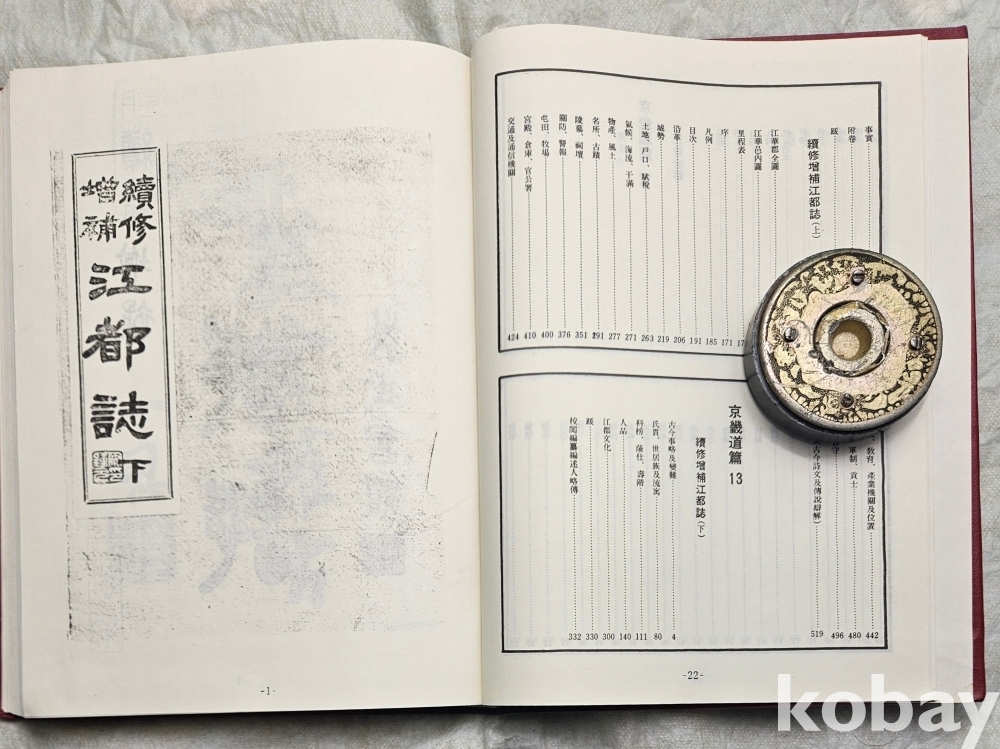 事實
附卷
跋
續修增補江都誌(上)
江華郡全圖
江華邑內圖
里程表
序 171
凡例 185
目次 191
沿革 206
城勢 219
土地、戶口、賦稅 263
氣候、海流、干滿 271
物產、風土 277
名所、古蹟 291
陵墓、祠壇 351
關防、警報 376
屯田、牧場 400
宮殿、倉庫、官公署 410
交通及通信機關 424
、敎育、產業機關及位置 442
軍制、貢士 480
守 496
古今詩文及傳說辯解) 519
京畿道篇 13
續修增補江都誌(下)
古今事略及變難 4
氏貫、世居族及流寓 80
科榜、蔭仕、壽階 111
人品 140
江都文化 300
跋 330
校閱編纂編述人略傳 332
-22-
續修
增補
江都誌下
-1-
kobay